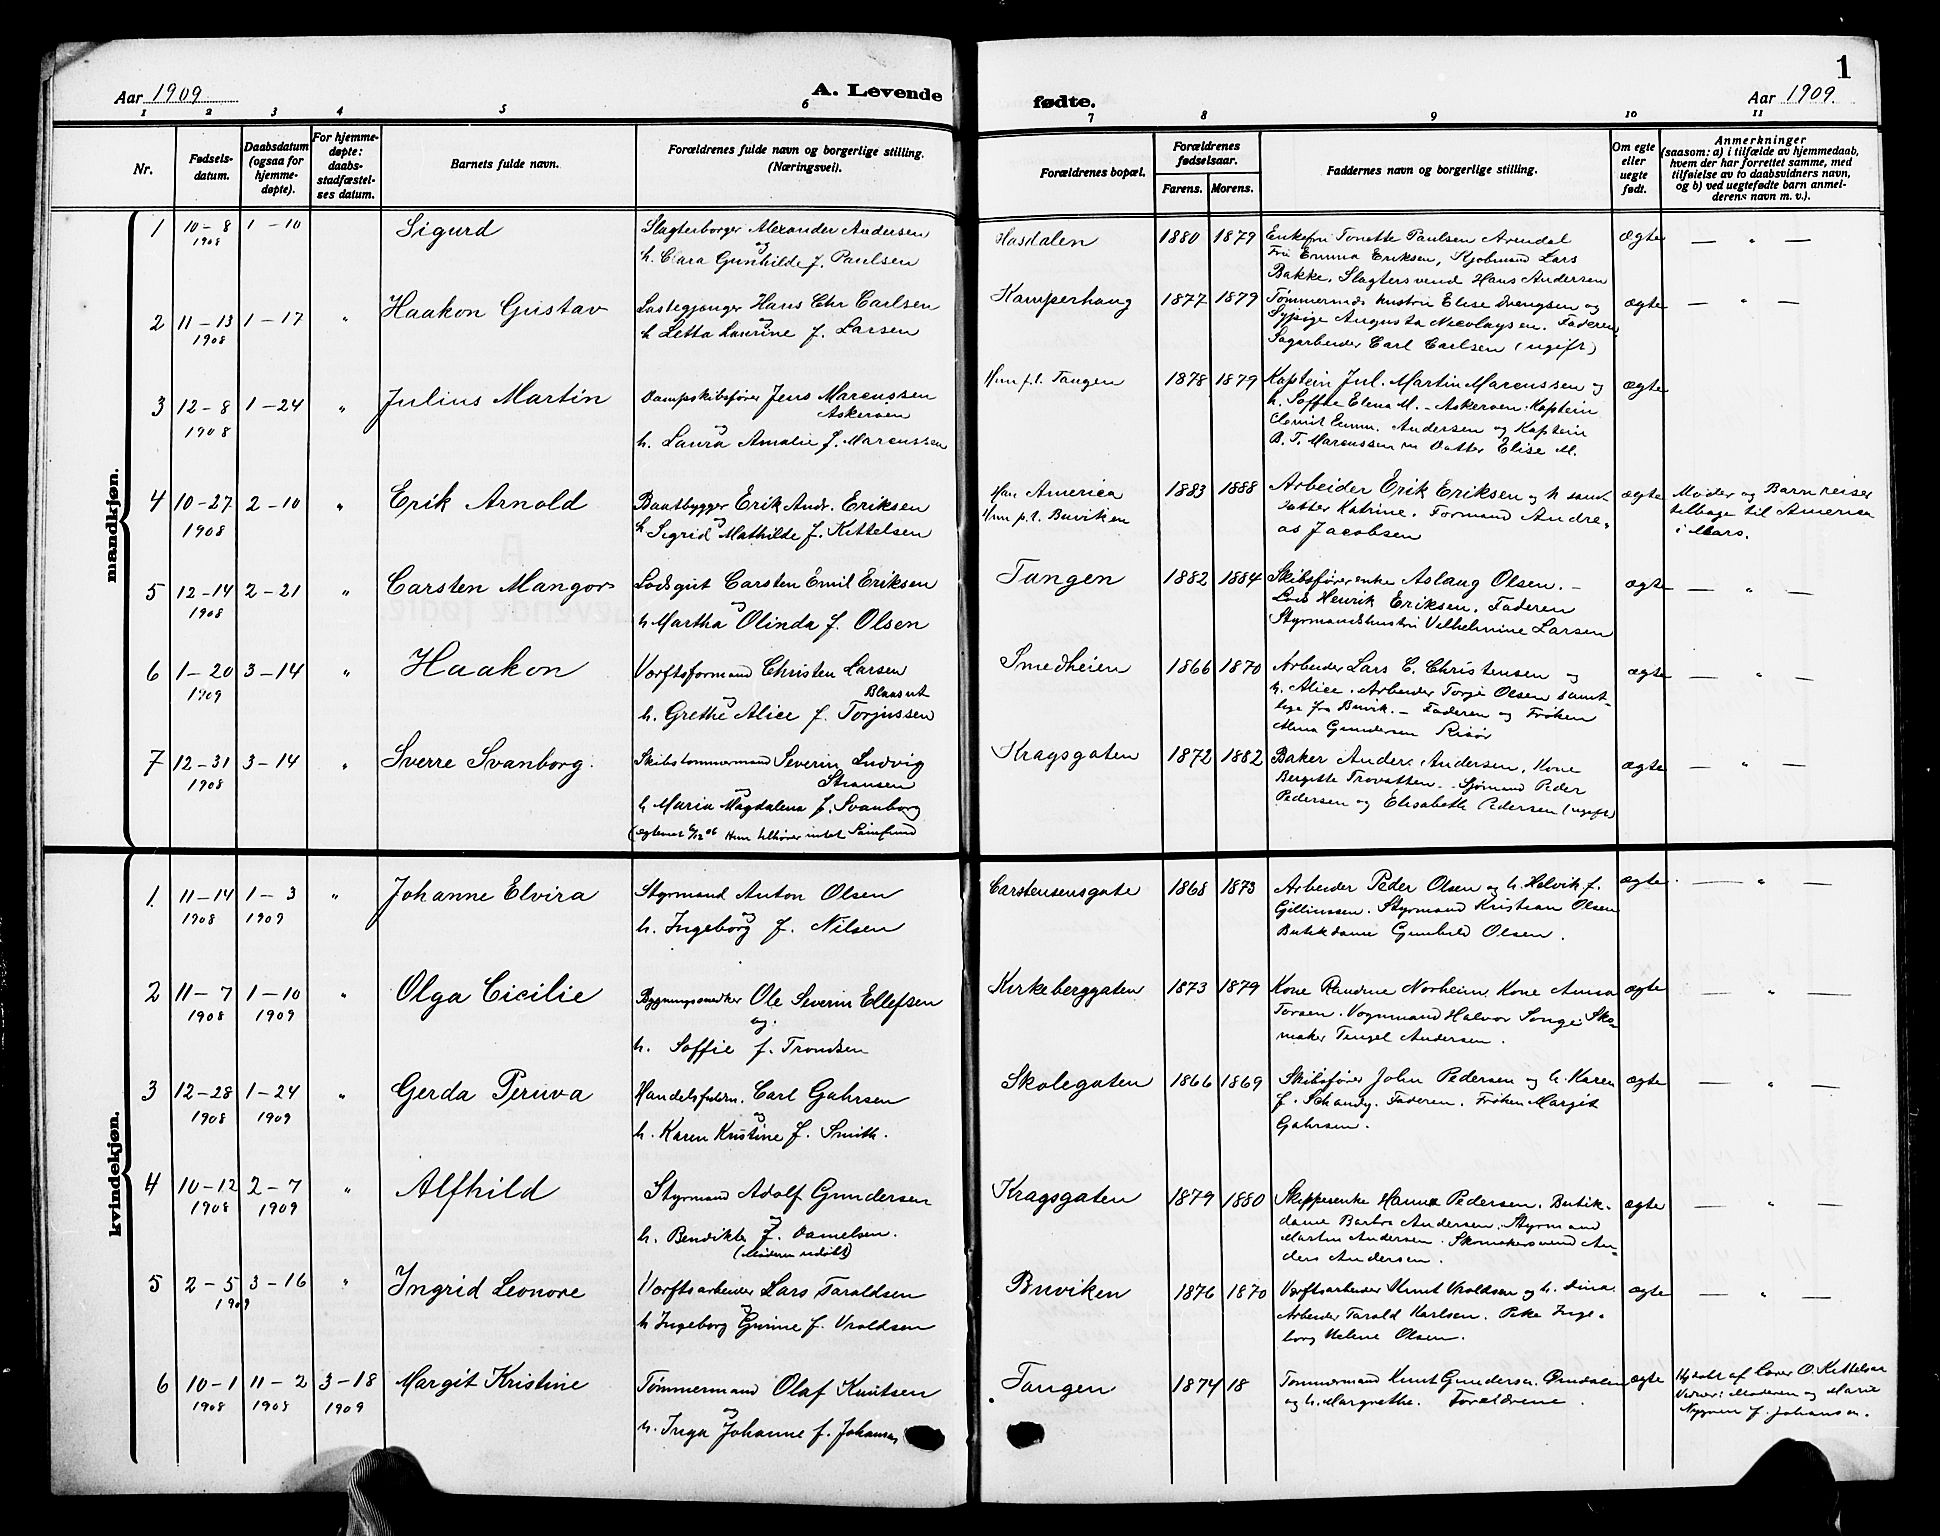 1
Aar 1909.
A. Levende
fødte.
Aar 1909.
1 2 3 4 5 6 7 8 9 10 11
Nr.
Fødsels-
datum.
Daabsdatum
(ogsaa for
hjemme-
døpte).
For hjemme-
døpte:
daabs-
stadfæstel-
ses datum.
Barnets fulde navn.
Forældrenes fulde navn og borgerlige stilling.
(Næringsvei).
Forældrenes bopæl.
Forældrenes
fødselsaar.
Farens. Morens.
Faddernes navn og borgerlige stilling.
Om egte
eller
uegte
født.
Anmerkninger
(saasom: a) i tilfælde av hjemmedaab,
hvem der har forrettet samme, med
tilføielse av to daabsvidners navn,
og b) ved uegtefødte barn anmel-
derens navn m. v.).
mandkjøn.
1 10-8 1908 1-10 Sigurd
Slagterborger Alexander Andersen
og
h. Clara Gunhilde f. Paulsen
Hasdalen 1880 1879
Enkefru Tonette Paulsen Arendal
Fru Emma Eriksen, Kjøbmand Lars
Bakke, Slagtersvend Hans Andersen
ægte — " —
2 11-13 1908 1-17 " Haakon Gustav
Lastegjænger Hans Chr Carlsen
og
h Letta Laurine f. Larsen
Kamperhaug 1877 1879
Tømmermds hustru Elise Svengsen og
Sypige Augusta Nicolaysen. Faderen,
Sagarbeider Carl Carlsen (ugift)
ægte — " —
3 12-8 1908 1-24 " Julius Martin
Dampskibsfører Jens Marcussen
Askerøen
og
h. Laura Amalie f. Marcussen
Hun p.t. Tangen 1878 1879
Kaptein Jul. Martin Marcussen og
h. Soffie Elena M. - Askerøen. Kaptein
Andersen og Kaptein
B. T. Marcussen m Datter Elise M.
ægte
4 10-27 1908 2-10 " Erik Arnold
Baatbygger Erik Andr. Eriksen
og
h Sigrid Mathilde f. Kittelsen
Han America
Hun p.t. Buviken
1883 1888
Arbeider Erik Eriksen og h samt
datter Katrine. Formand Andre-
as Jacobsen
ægte
Moder og Barn reiser
tilbage til America
i Mars.
5 12-14 1908 2-21 " Carsten Mangor
Lodsgut Carsten Emil Eriksen
og
h Martha Olinda f. Olsen
Tangen 1882 1884
Skibsførerenke Aslaug Olsen. -
Lods Henrik Eriksen. Faderen
Styrmandshustru Vilhelmine Larsen
ægte — " —
6 1-20 1909 3-14 " Haakon
Værftsformand Christen Larsen
Blaasut
og
h. Grethe Alice f. Torjussen
Smedheien 1866 1870
Arbeider Lars C. Christensen og
h. Alice. Arbeider Torje Olsen samt-
lige fra Buvik. - Faderen og Frøken
Alma Gundersen Risør
ægte — " —
7 12-31 1908 3-14 " Sverre Svanborg.
Skibstømmermand Severin Ludvig
Stransen
og
h Maria Magdalena f. Svanborg
(egteviet 6/12 06 Hun tilhører intet Samfund
Kragsgaten 1872 1882
Baker Anders Andersen, Kone
Bergitte Trovatten. Sjømand Peder
Pedersen og Elisabeth Pedersen (ugift)
ægte — " —
kvindekjøn.
1. 11-14 1908 1-3 1909 " Johanne Elvira
Styrmand Anton Olsen
og
h. Ingeborg f. Nilsen
Carstensensgate 1868 1873
Arbeider Peder Olsen og h. Helvik f.
Styrmand Kristian Olsen
Butikdame Gunhild Olsen.
ægte — " —
2 11-7 1908 1-10 1909 " Olga Cicilie
Bygningssnedker Ole Severin Ellefsen
og.
h. Soffie f. Trondsen
Kirkeberggaten 1873 1879
Kone Randine Norheim. Kone Anna
Torsen. Vognmand Halvor Songe Sko-
maker Tengel Andersen.
ægte — " —
3 12-28 1908 1-24 1909 " Gerda Peruva
Handelsfuldm. Carl Gahrsen
og
h. Karen Kristine f. Smith.
Skolegaten 1866 1869
Skibsfører John Pedersen og h. Karen
f. Schandy. Faderen. Frøken Margit
Gahrsen.
ægte — " —
4 10-12 1908 2-7 1909 " Alfhild
Styrmand Adolf Gundersen
og
h. Bendikte f. Danielsen.
(Moderen udøbt)
Kragsgaten 1879 1880
Skipperenke Hanna Pedersen. Butik-
dame Barbro Andersen. Styrmand
Martin Andersen. Skomakersvend An-
ders Andersen.
ægte — " —
5 2-5 1909 3-16 " Ingrid Leonore
Værftsarbeider Lars Taraldsen
og
h Ingeborg Gurine f. Vraldsen
Buviken 1876 1870
Værftsarbeider Knut Vraldsen og h. Lina.
Arbeider Tarald Karlsen. Pike Inge-
borg Helene Olsen.
ægte — " —
6 10-1 1908 11-2 1908 3-18 1909 Margit Kristine
Tømmermand Olaf Knutsen
og
h. Inga Johanne f. Johansen
Tangen 1874 18
Tømmermand Knut Gundersen
og h. Margrethe. Forældrene.
ægte
Hj.døbt af Lærer O. Kittelsen
Vidner: Moderen og Marie
f. Johansen.